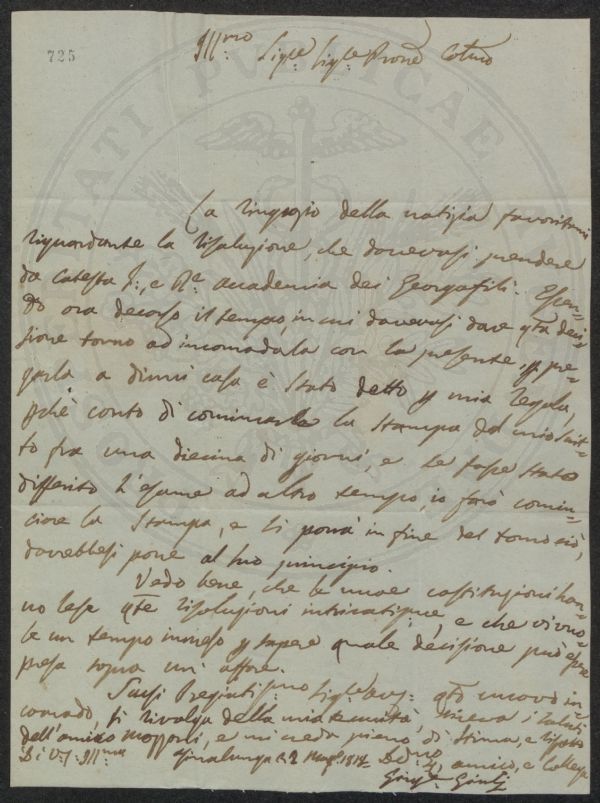 725
Ill:mo Sig:re Sig:re Prone Colmo
La ringrazio della notizia favoritami
riguardante la risoluzione, che dovevasi prendere
da cotesta I:, e R:e accademia dei Georgofili. Essen-
do ora decorso il tempo, in cui dovevasi dare qta deci-
sione torno ad incomodarla con la presente p pre-
garla a dirmi cosa è stato detto p mia regola,
pchè conto di cominciare la stampa del mio scrit-
to fra una diecina di giorni, e se fosse stato
differito l'esame ad altro tempo, io farò comin-
ciare la stampa, e si porrà in fine del tomo ciò,
dovrebbesi porre al suo principio.
Vedo bene, che le nuove costituzioni han-
no rese qte risoluzioni intricatissime, e che vi vuo-
le un tempo immenso p sapere quale decisione può esser
presa sopra un' affare.
Scusi Pregiatissmo Sig:re qto nuovo in-
comodo, si rivalga della mia tenuità, riceva i saluti
dell'amico, e mi creda pieno di stima, e rispetto
Di V:S: Ill:ma Sinalunga 1818 amico, e Collega
Giusp:e Giulj